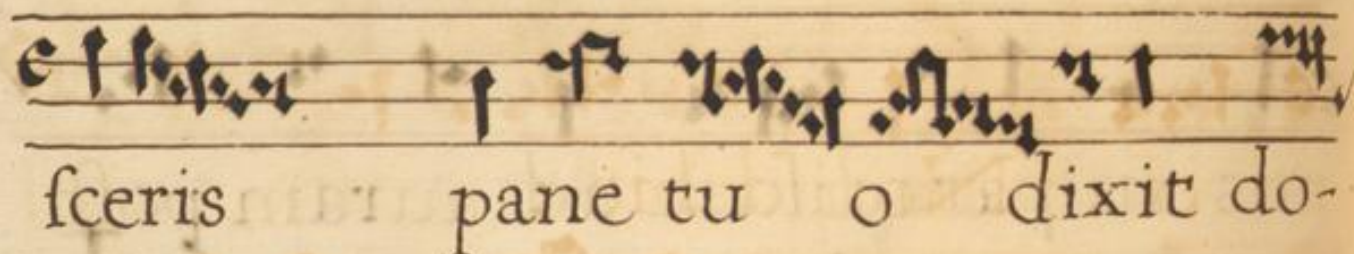 ſceris pane tu o dixit do-